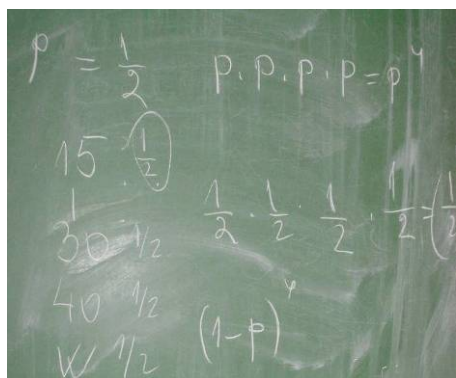 p = 1/2
p . p . p . p = p^4
15 1/2
1/2 . 1/2 . 1/2 . 1/2 = (1/2
30 1/2
40 1/2
(1-p)^4
W 1/2